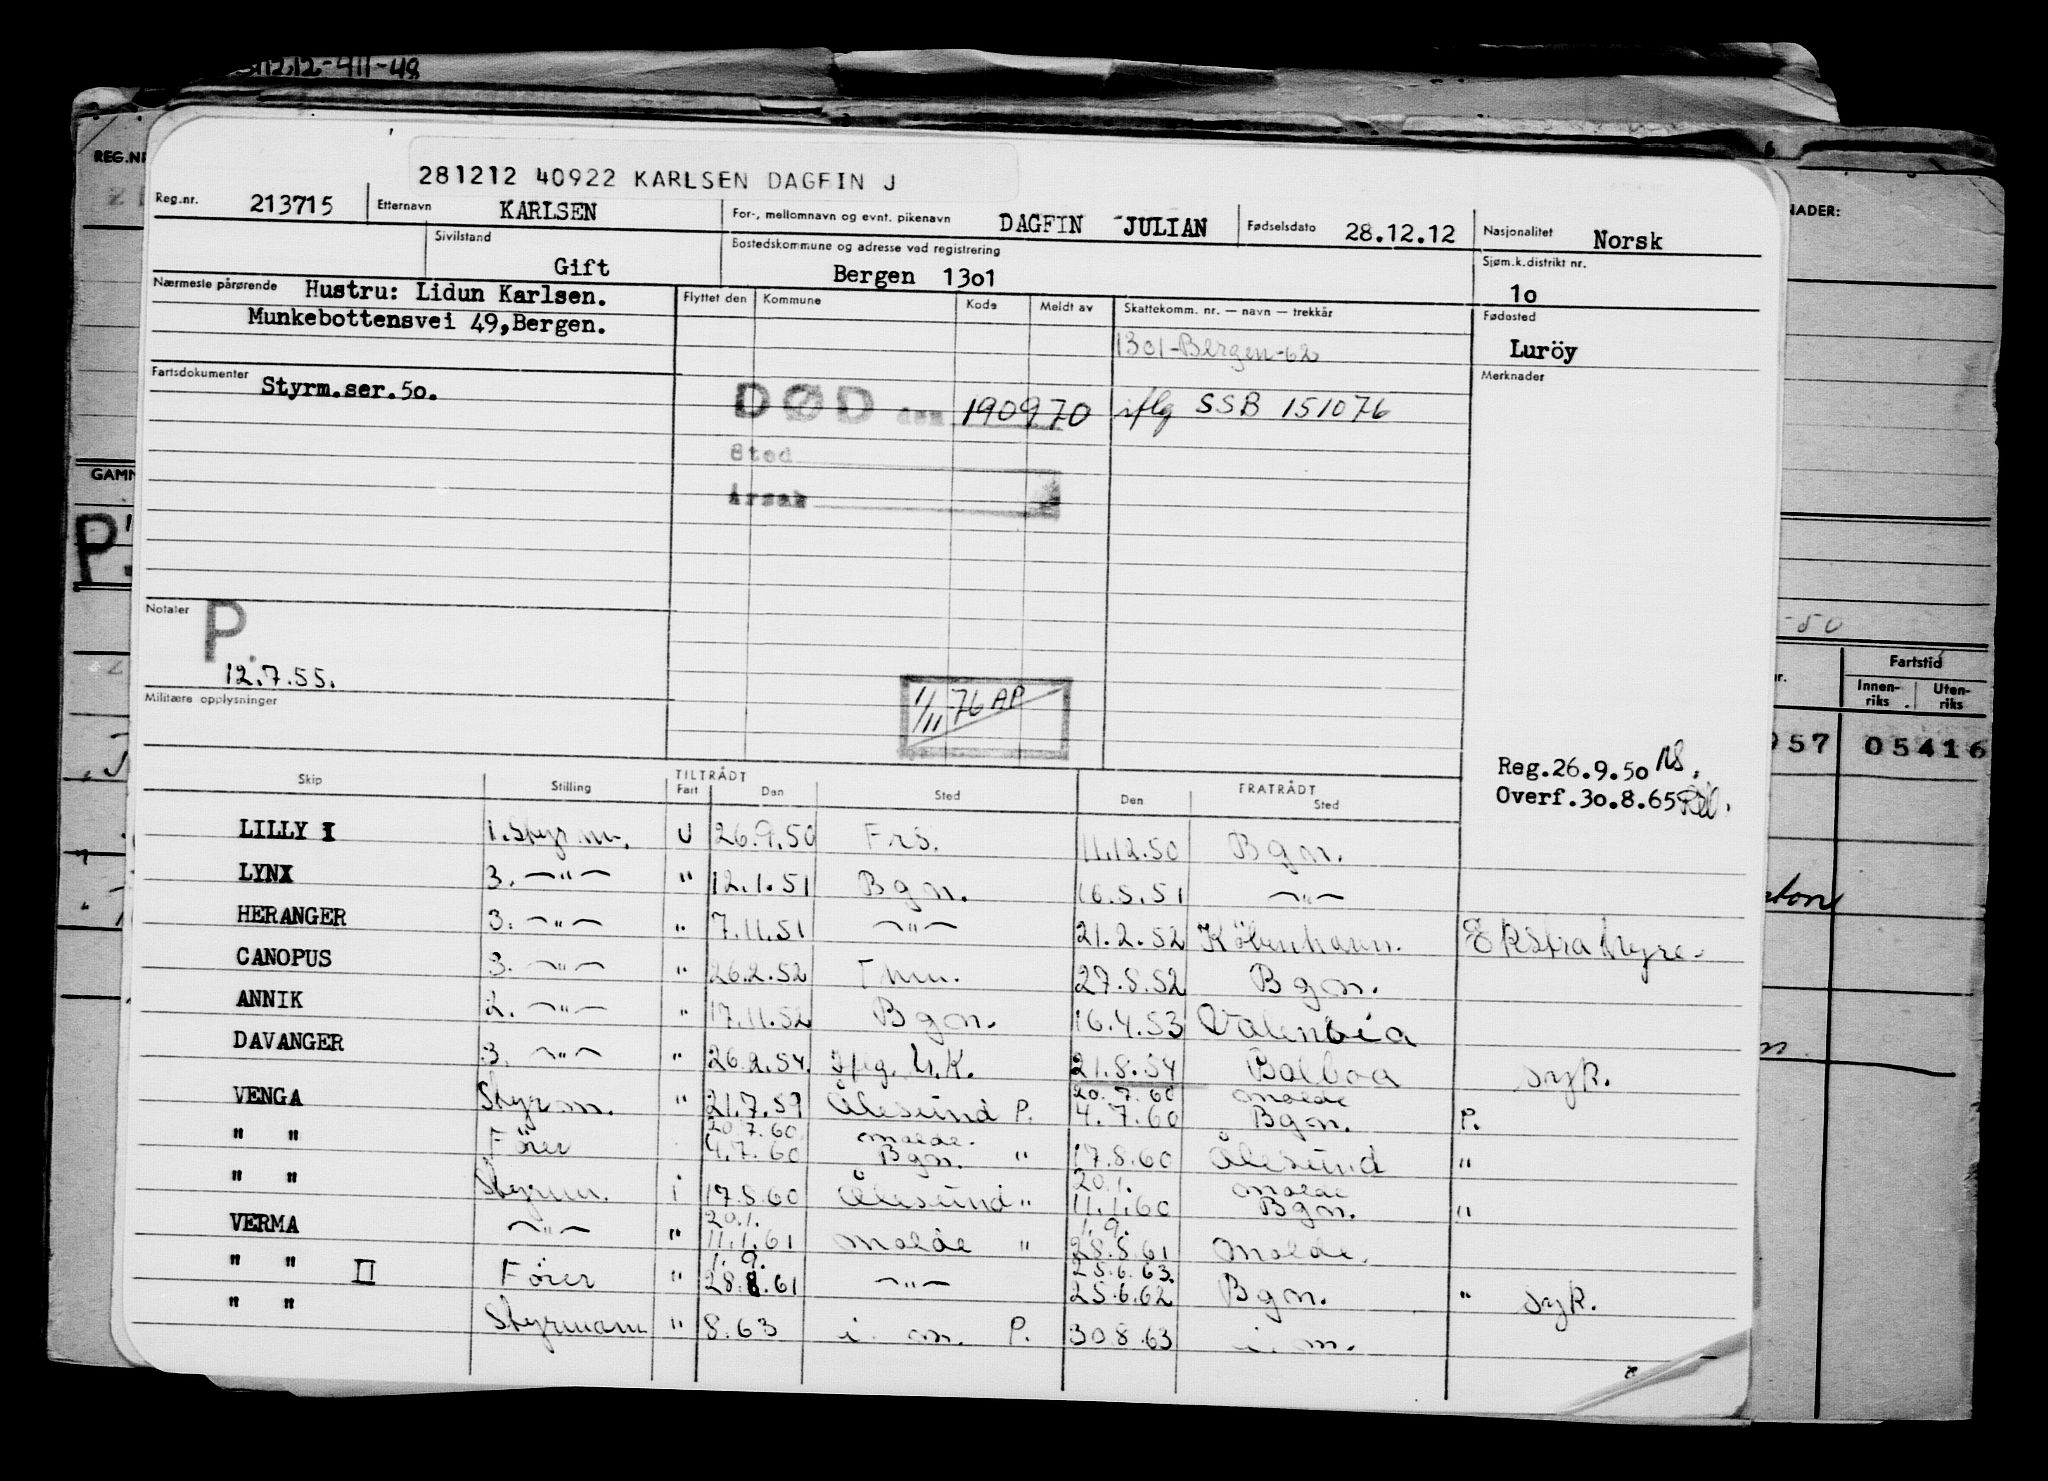 281212 40922 KARLSEN DAGFIN J
Reg.nr. 213715 Etternavn KARLSEN For-, mellomnavn og evnt. pikenavn DAGFIN JULIAN Fødselsdato 28.12.12 Nasjonalitet Norsk
Sivilstand Gift Bostedskommune og adresse ved registrering Bergen 13o1 Sjøm.k.distrikt nr. 1o
Nærmeste pårørende Hustru: Lidun Karlsen. Flyttet den Kommune Kode Meldt av Skattekomm. nr. — navn — trekkår Fødested
Munkebottensvei 49,Bergen. 1301-Bergen-62 Luröy
Fartsdokumenter Styrm.ser.5o. Merknader
DØD den 190970 iflg SSB 151076
Sted
Årsak
Notater P.
12.7.55.
Militære opplysninger
1/11 76 AP
Reg.26.9.5o
Overf.3o.8.65
TILTRÅDT FRATRÅDT
Skip Stilling Fart Den Sted Den Sted
LILLY I 1. Styrm. U 26.9.50 Frs. 11.12.50 Bgn.
LYNX 3. —"— " 12.1.51 Bgn. 16.5.51 —"—
HERANGER 3. —"— " 7.11.51 —"— 21.2.52 Köbenhavn. Ekstra
CANOPUS 3. —"— " 26.2.52 27.8.52 Bgn.
ANNIK 2. —"— " 17.11.52 Bgn. 16.4.53 Valencia
DAVANGER 3. —"— " 26.2.54. U.K. 21.8.54 Balboa syk.
20.7.60 Molde
VENGA Styrm. " 21.7.59 Ålesund P. 4.7.60 Bgn. P.
20.7.60 Molde.
" " Förer 4.7.60 Bgn. " 17.8.60 Ålesund "
20.1. Molde
" " Styrm. i 17.8.60 Ålesund " 11.1.60 Bgn. "
20.1. 1.9.
VERMA —"— " 11.1.61 Molde " 28.8.61 Molde.
1.9. 25.6.63.
" " II Förer " 28.8.61 —"— 25.6.62 Bgn. " syk.
" " Styrmann " 8.63 i. m. P. 30.8.63 i. m.
REG.NR
GAMM
P
NADER:
-50
Fartstid
Innen-riks Uten-riks
957 05416